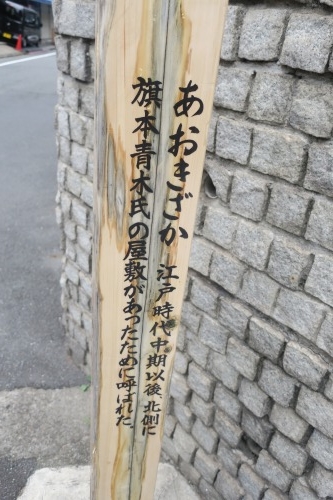 あおきざか 江戸時代中期以後、北側に
旗本青木氏の屋敷があったために呼ばれた。